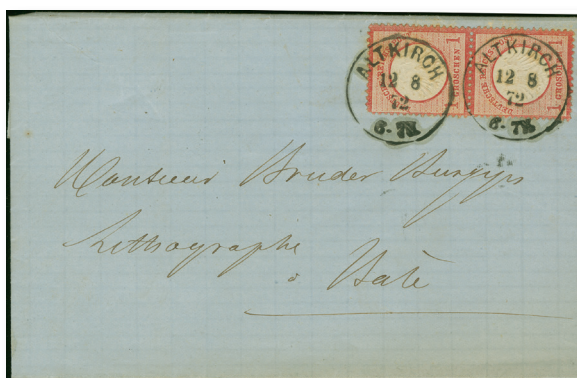 ALTKIRCH
12 8
72
6-7N
ALTKIRCH
12 8
72
6-7N
1 GROSCHEN 1
DEUTSCHE
1 GROSCHEN 1
Monsieur Bruder
Lithographe
à Bâle